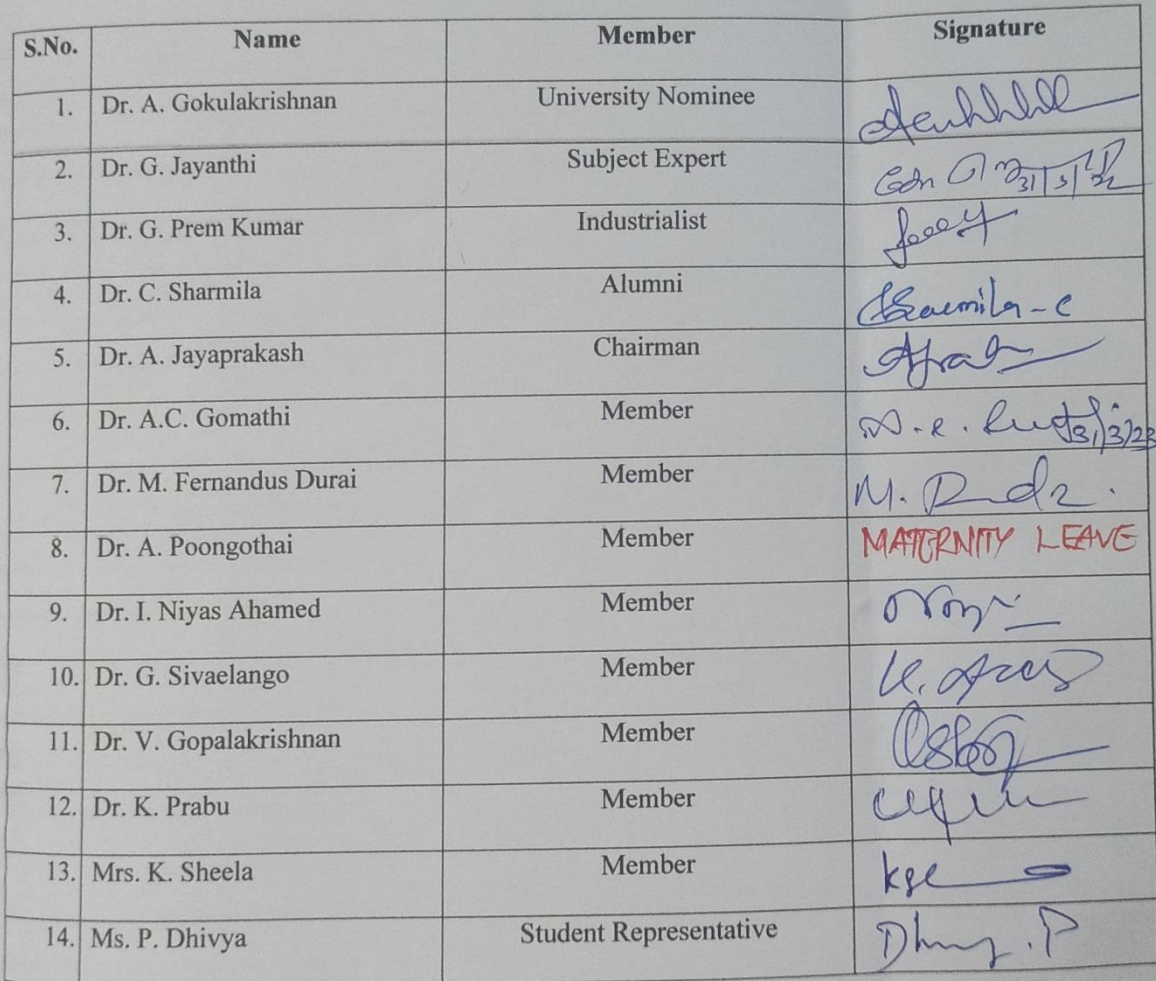 S.No. Name Member Signature
1. Dr. A. Gokulakrishnan University Nominee
2. Dr. G. Jayanthi Subject Expert
3. Dr. G. Prem Kumar Industrialist
4. Dr. C. Sharmila Alumni
5. Dr. A. Jayaprakash Chairman
6. Dr. A.C. Gomathi Member
7. Dr. M. Fernandus Durai Member
8. Dr. A. Poongothai Member MATERNITY LEAVE
9. Dr. I. Niyas Ahamed Member
10. Dr. G. Sivaelango Member
11. Dr. V. Gopalakrishnan Member
12. Dr. K. Prabu Member
13. Mrs. K. Sheela Member
14. Ms. P. Dhivya Student Representative